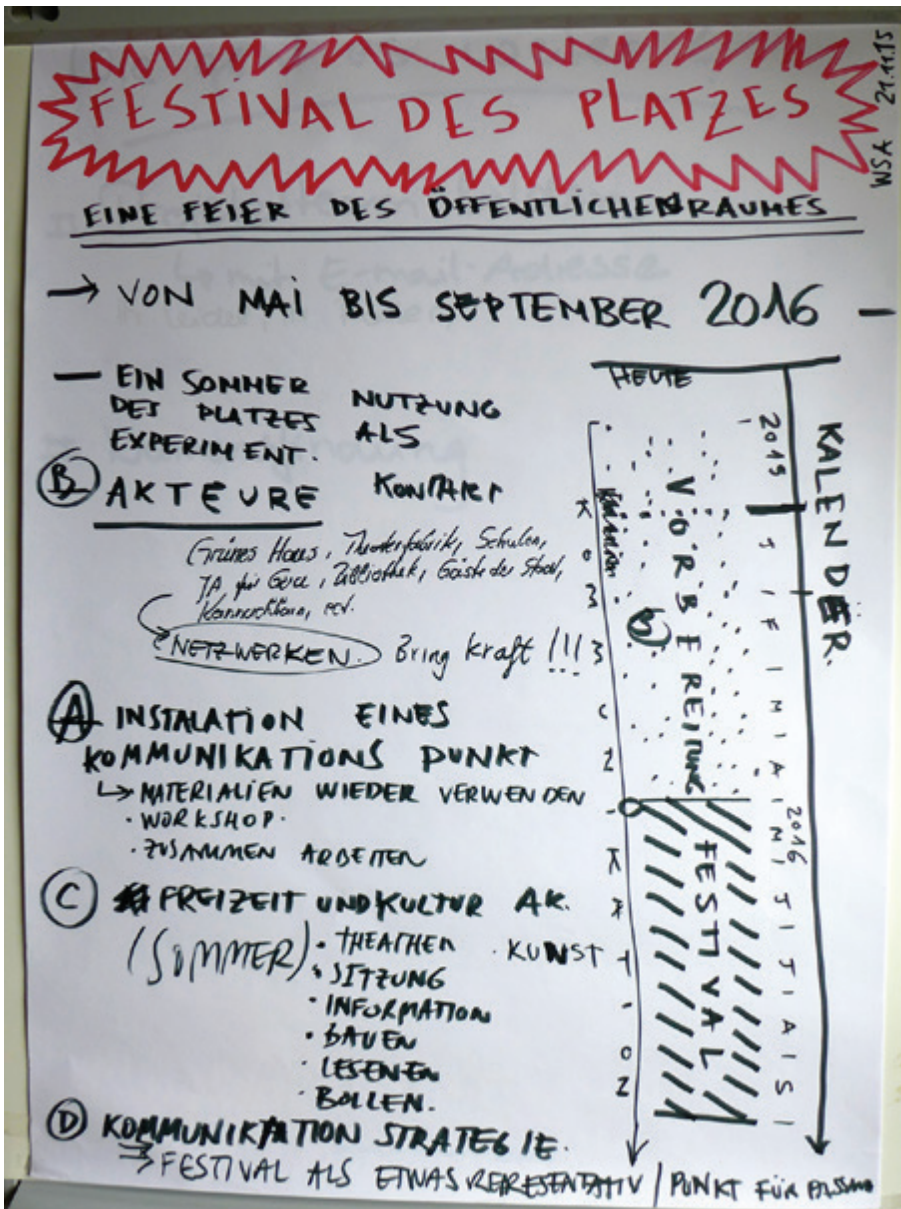 FESTIVAL DES PLATZES
WSA 21.11.15
EINE FEIER DES ÖFFENTLICHEN RAUMES
→ VON MAI BIS SEPTEMBER 2016 –
– EIN SOMMER
DES PLATZES NUTZUNG
EXPERIMENT. ALS
B AKTEURE KONTAKT
Grünes Haus, Theaterfabrik, Schulen,
JA für Gera, Bibliothek, Gäste der Stadt,
NETZWERKEN. Bring Kraft !!!
A INSTALATION EINES
KOMMUNIKATIONS PUNKT
↳ MATERIALIEN WIEDER VERWENDEN
· WORKSHOP.
· ZUSAMMEN ARBEITEN
C FREIZEIT UND KULTUR AK.
(SOMMER) · THEATHEN · KUNST
· SITZUNG
· INFORMATION
· BAUEN
· LESENEN
· BOLLEN.
D KOMMUNIKATION STRATEGIE.
FESTIVAL ALS ETWAS REPRESENTATIV / PUNKT FÜR
HEUTE
KALENDER
2015
J F M A
2016
M J J A S
VORBEREITUNG
FESTIVAL